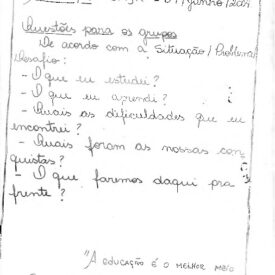 junho/2009
Questões para os grupos
De acordo com a Situação/Problema/
Desafio:
- O que eu estudei?
- O que eu aprendi?
- Quais as dificuldades que eu
encontrei?
- Quais foram as nossas con-
quistas?
- O que faremos daqui pra
frente?
"A EDUCAÇÃO É O MELHOR MEIO